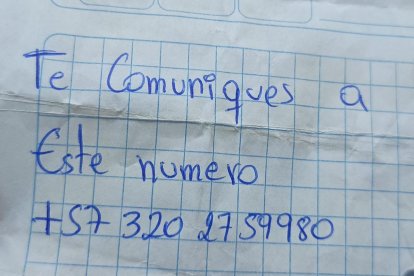 Te Comuniques a
Este numero
+57 320 2759980